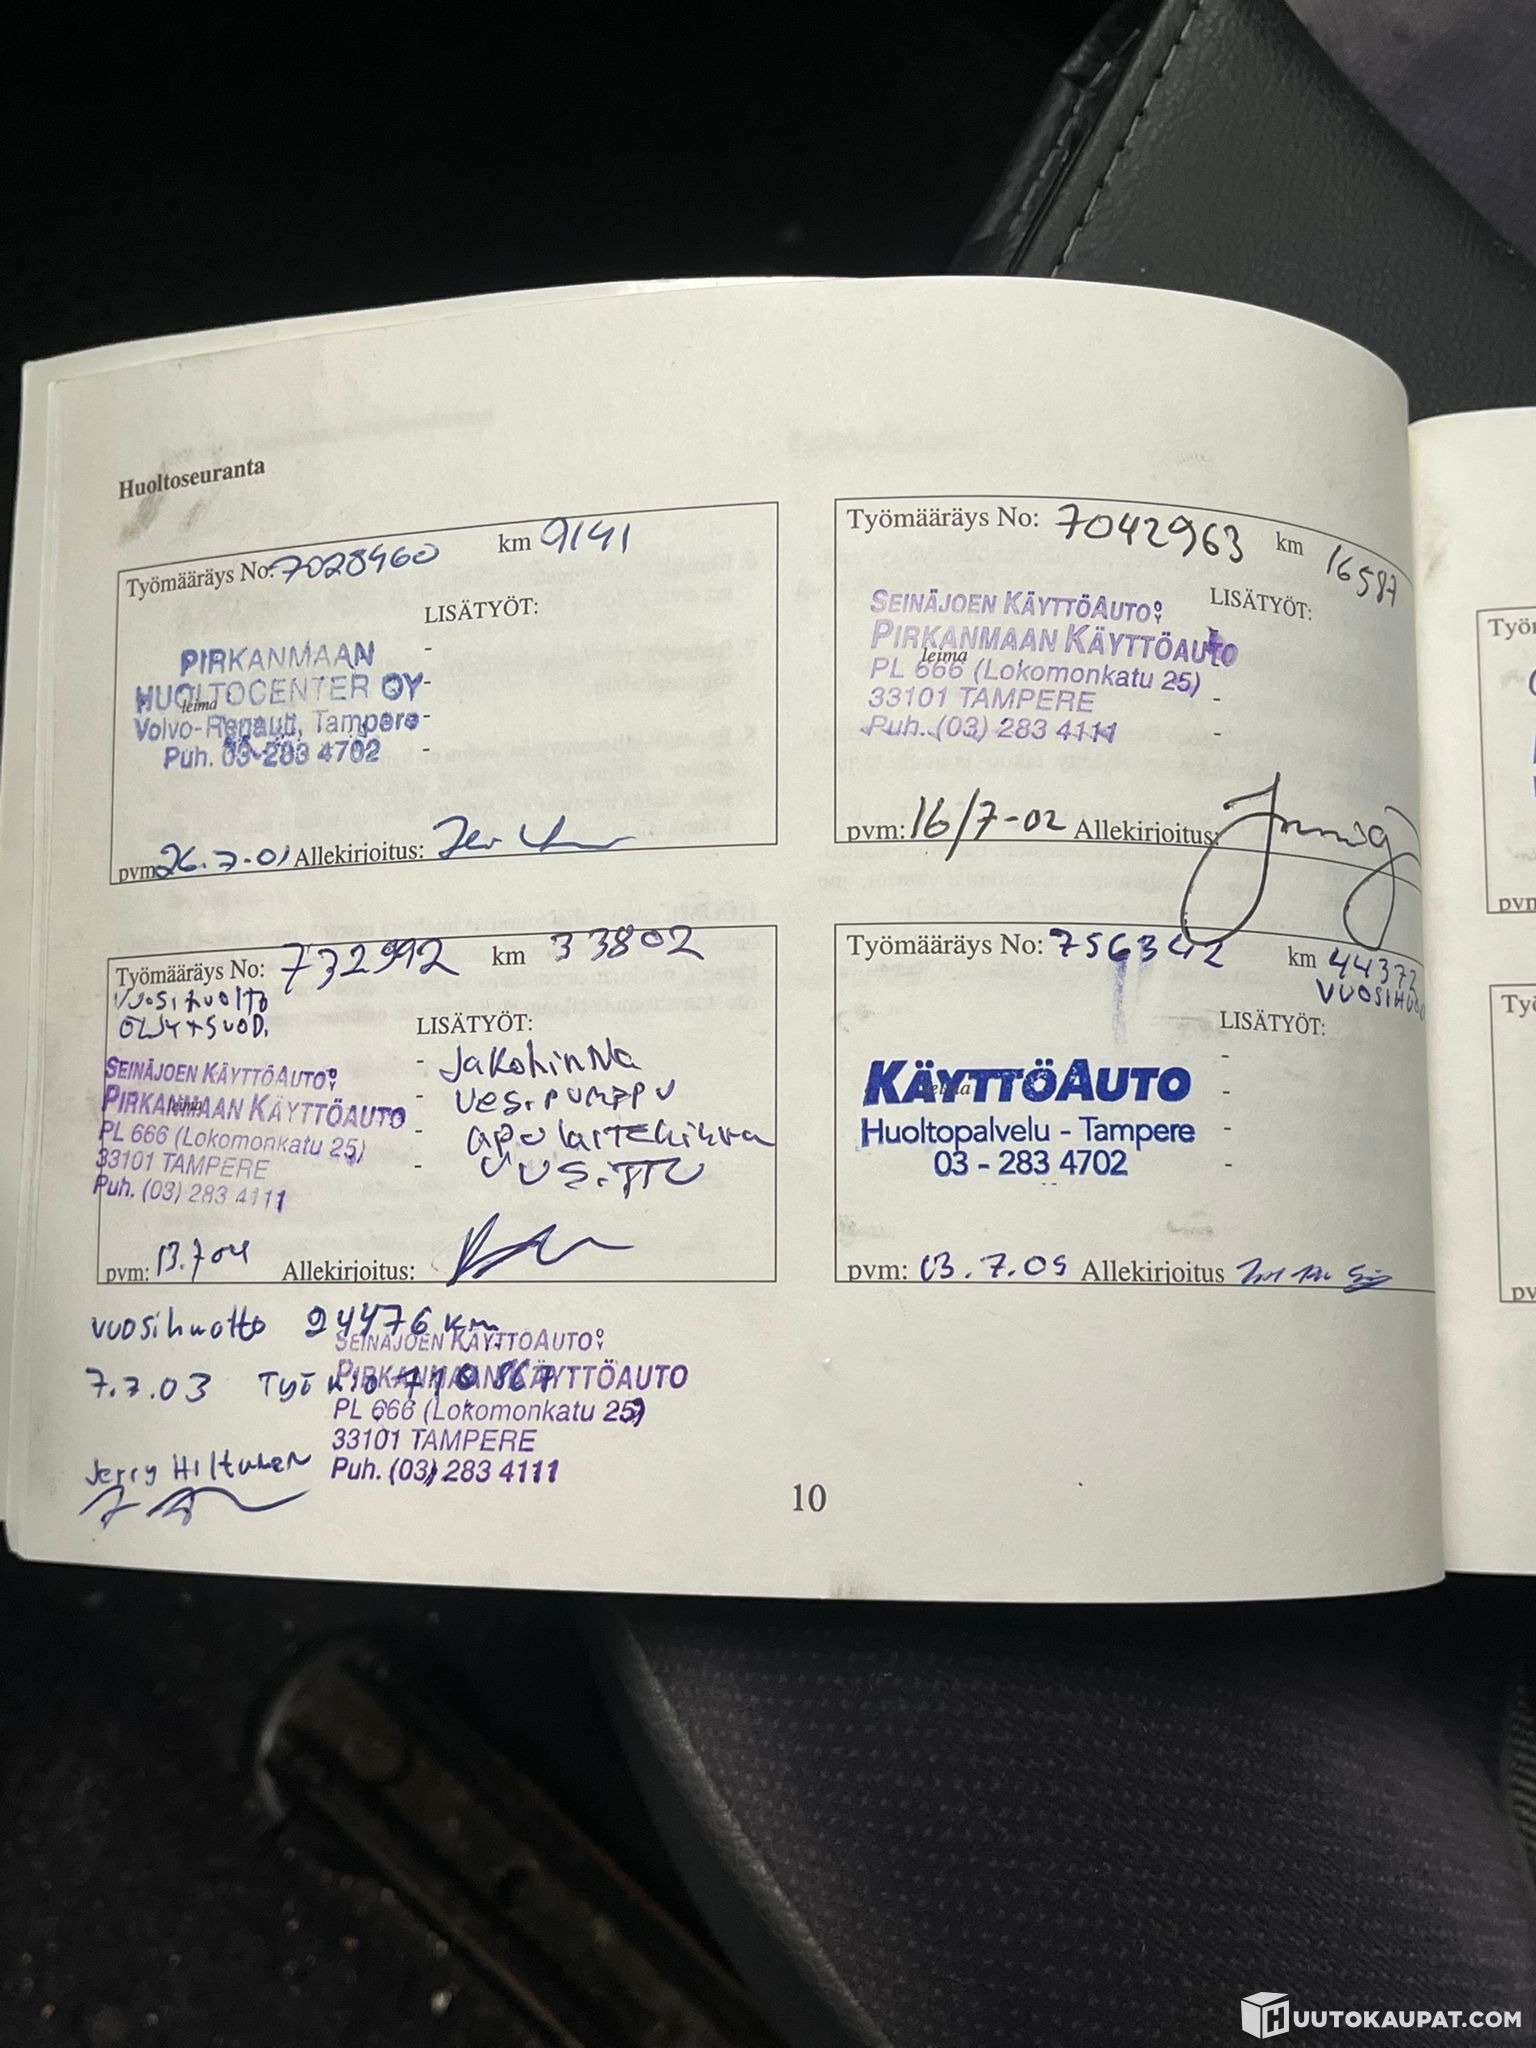 Huoltoseuranta
Työmääräys No: 7028460 km 9141
LISÄTYÖT:
-
PIRKANMAAN
HUOLTOCENTER OY
leima
Volvo-Renault, Tampere
Puh. 03-283 4702
pvm: 26.7-01 Allekirjoitus:
Työmääräys No: 7042963 km 16587
LISÄTYÖT:
SEINÄJOEN KÄYTTÖAUTO OY
PIRKANMAAN KÄYTTÖAUTO
leima
PL 666 (Lokomonkatu 25)
33101 TAMPERE
Puh. (03) 283 4111
pvm: 16/7-02 Allekirjoitus:
Työmääräys No: 732992 km 33802
VUOSIHUOLTO
ÖLJY+SUOD.
LISÄTYÖT:
- Jakohihna
- vesipumppu
- apulaitehihna
- UUSITTU
SEINÄJOEN KÄYTTÖAUTO OY
PIRKANMAAN KÄYTTÖAUTO
leima
PL 666 (Lokomonkatu 25)
33101 TAMPERE
Puh. (03) 283 4111
pvm: 13.7 04 Allekirjoitus:
Työmääräys No: 756342 km 44372
LISÄTYÖT:
KÄYTTÖAUTO
leima
Huoltopalvelu - Tampere
03 - 283 4702
pvm: 03.7.05 Allekirjoitus
vuosihuolto 24476 km
7.7.03
Jerry Hiltunen
SEINÄJOEN KÄYTTÖAUTO OY
PIRKANMAAN KÄYTTÖAUTO
PL 666 (Lokomonkatu 25)
33101 TAMPERE
Puh. (03) 283 4111
10
HUUTOKAUPAT.COM